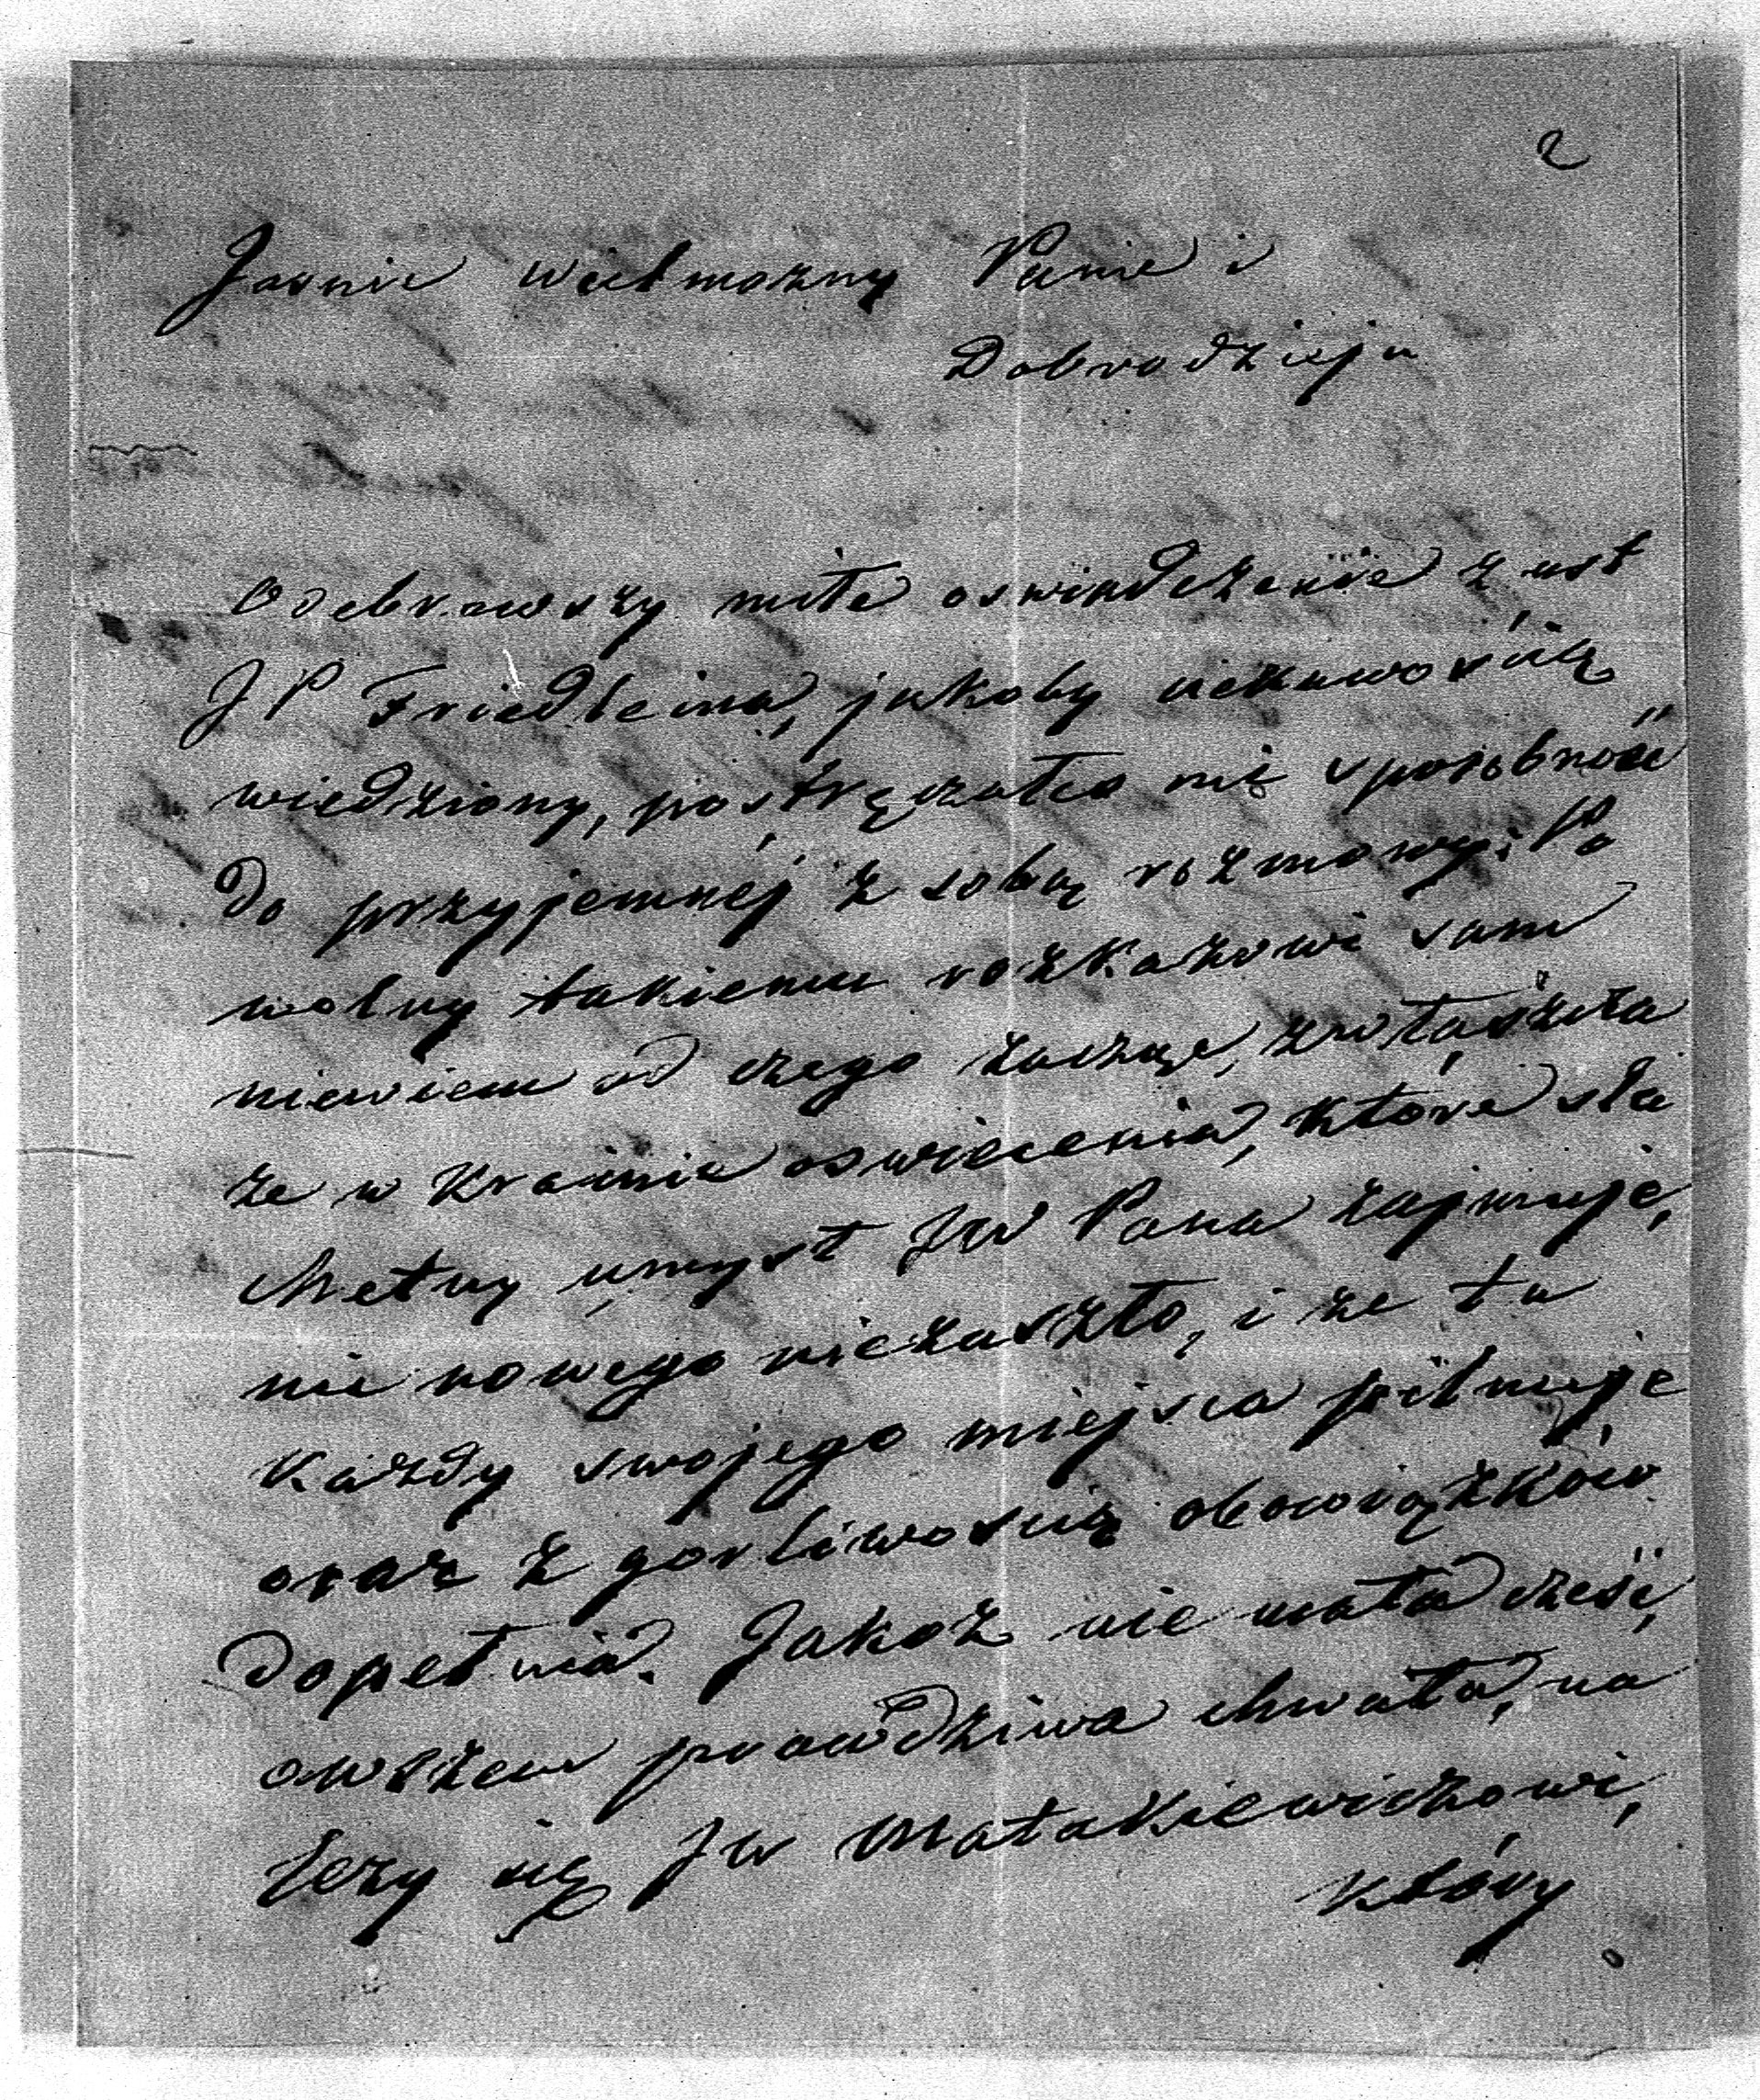 2
Jasnie wielmozny Panie i
Dobrodzieju
Odebrawszy miłe oswiadczenie z ust
JP Friedleina, jakoby ciekawością
wiedziony, postręczałeś mi sposobność
do przyjemnej z sobą rozmowy: Po
wolny takiemu rozkazowi sam
niewiem od czego zacznę, zwłaszcza
ze w krainie oswiecenia, które sla
chetny umysł JW Pana zajmuje,
nic nowego niezaszło, i ze tu
każdy swojego miejsca pilnuje
oraz z gorliwoscią obowiązków
dopełnia. Jakoz nie mała cześć,
owszem prawdziwa chwała, na
lezy się JW Małakiewiczowi,
który